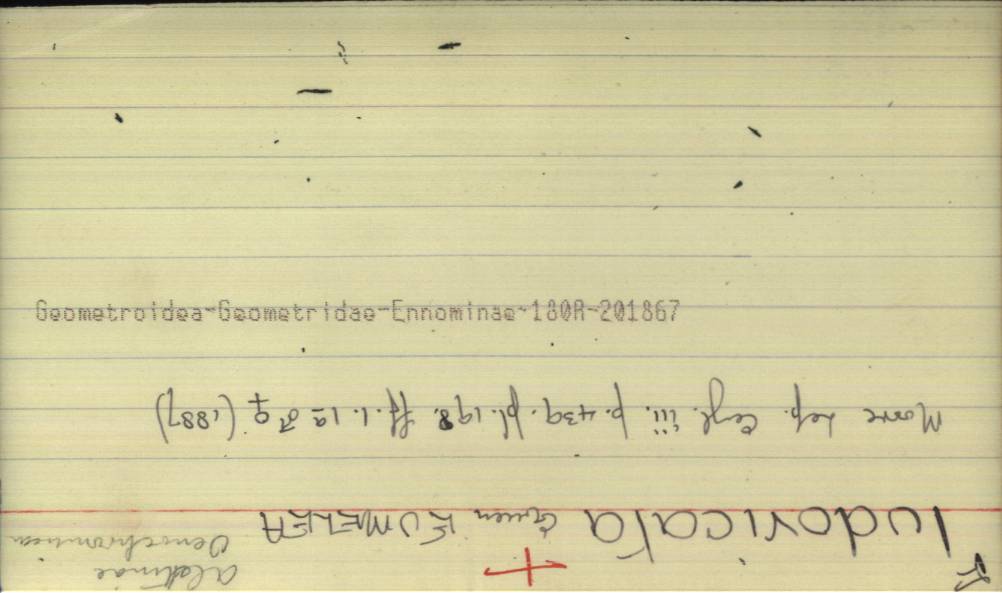 alatinae
Oenochrominae
ludovicata Guen EUMELEA
Moore Lep. Ceyl. iii. p. 439. pl. 198. ff. 1. 1a ♂ ♀ (1887)
Geometroidea-Geometridae-Ennominae-180R-201867